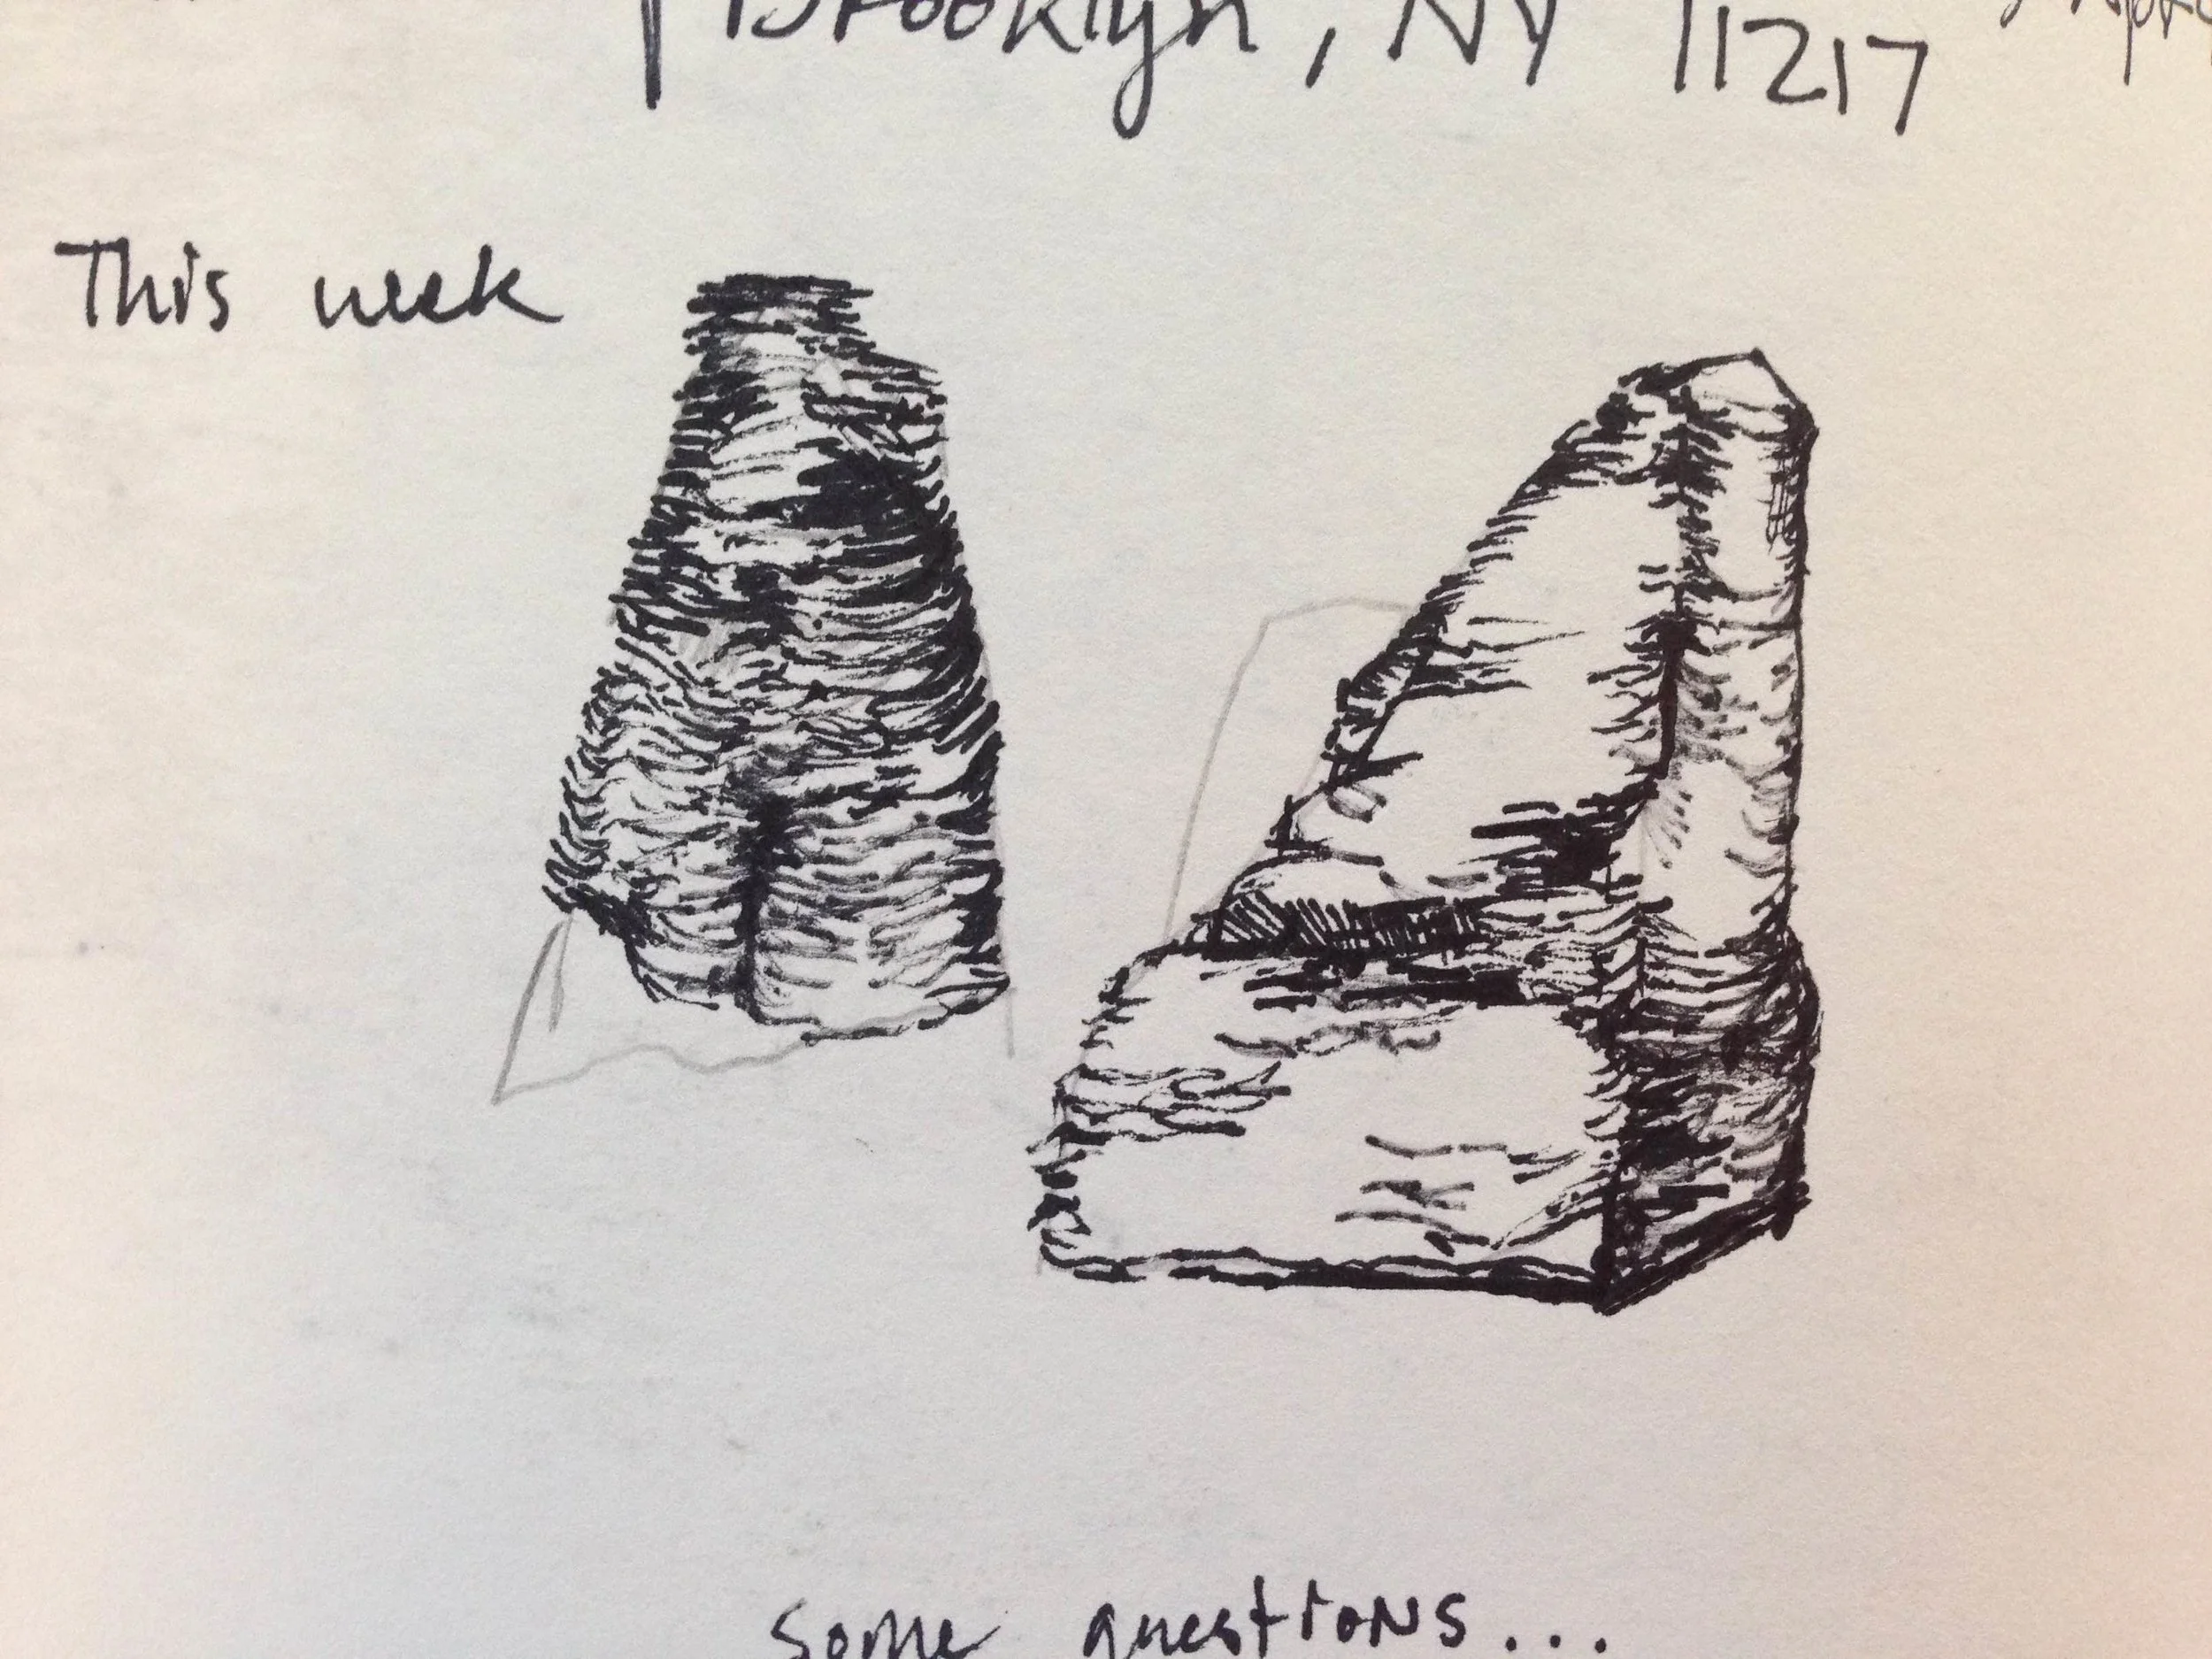 Brooklyn, NY 11217
This week
some questions...